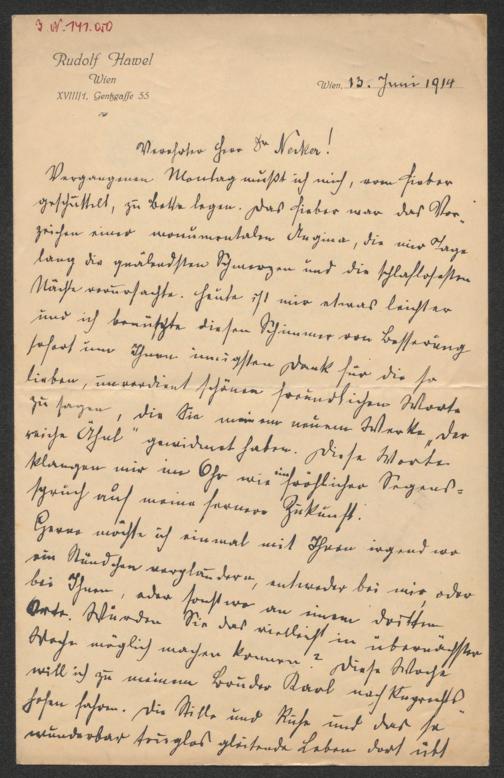 J. N. 141.050
Rudolf Hawel
Wien
XVIII/1, Gentzgasse 55
Wien, 13. Juni 1914
Verehrter Herr Dr Necker!
Vergangenen Montag mußt ich mich, vom Fieber
geschüttelt, zu Bette legen. Das Fieber war das Vor-
zeichen einer monumentalen Angina, die mir Tage
lang die quälendsten Schmerzen und die schlaflosesten
Nächte verursachte. Heute ist mir etwas leichter
und ich benützte diesen Schimmer von Besserung
sofort um Ihnen innigsten Dank für die so
lieben, unverdient schönen freundlichen Worte
zu sagen, die Sie meinem neuem Werke „Der
reiche Ähnl“ gewidmet haben. Diese Worte
klangen mir im Ohr wie ein fröhlicher Segens=
spruch auf meine fernere Zukunft.
Gerne möchte ich einmal mit Ihnen irgend wo
ein Stündchen verplaudern, entweder bei mir oder
bei Ihnen, oder sonst wo an einem dritten
Orte. Würden Sie das vielleicht in übernächster
Woche möglich machen können? Diese Woche
will ich zu meinem Bruder Karl nach Ruprechts
hofen fahren. Die Stille und Ruhe und das so
wunderbar truglos gleitende Leben dort übt